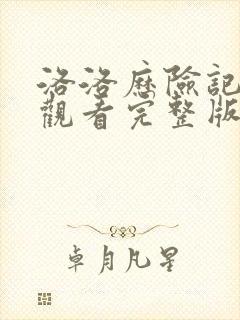 洛洛歷險記
觀看完整版
卓月凡星